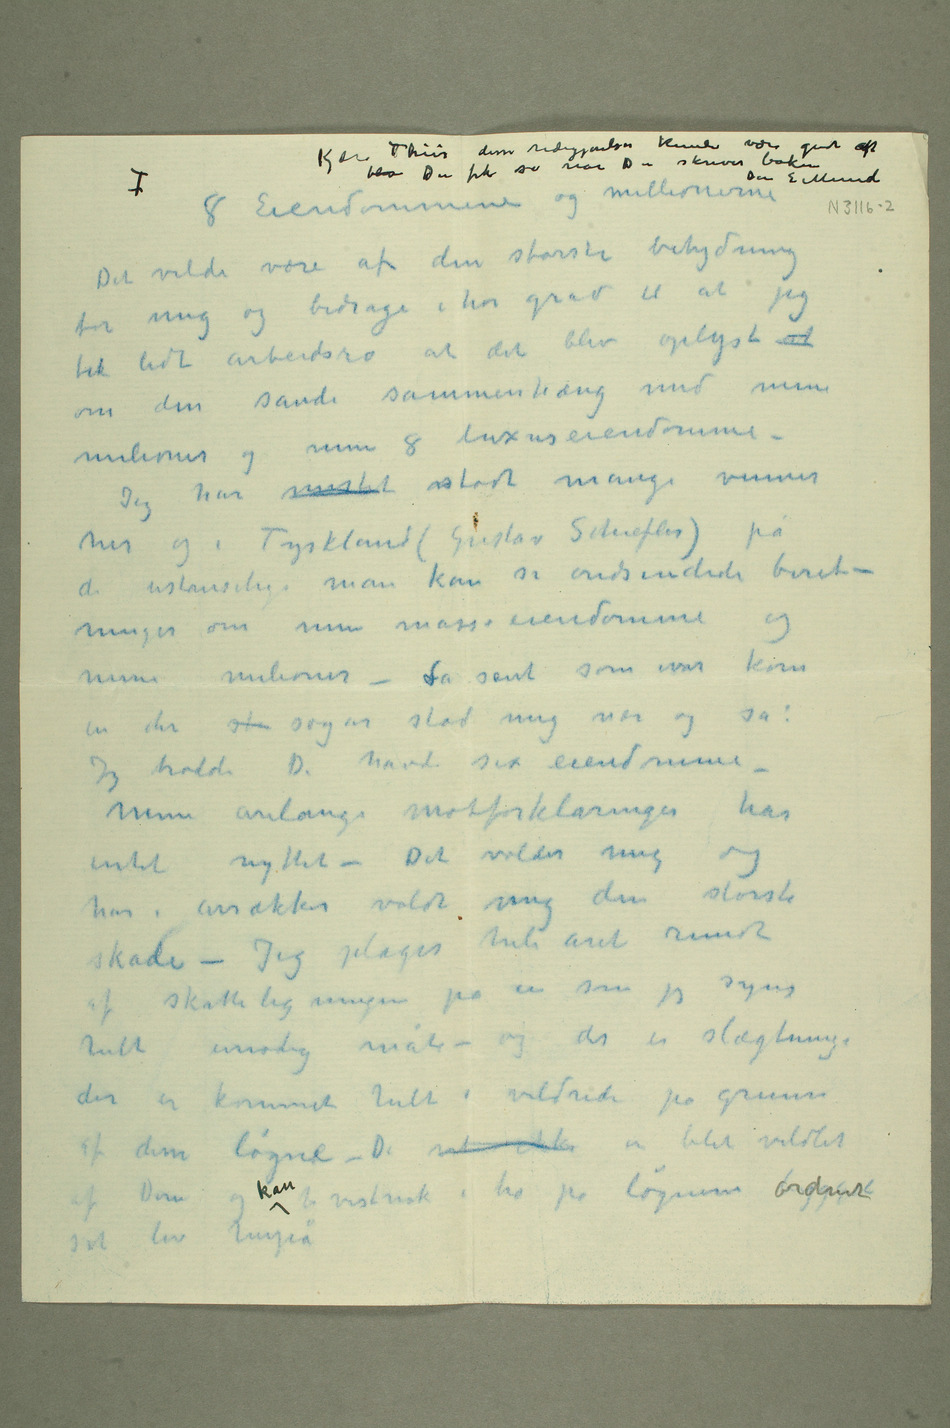 Kjære Thiis denne redegjørelse kunde være godt at
I
blev Du fik se når Du skriver boken
Din E Munch
8 Eiendommene og millionerne
N3116-2
Det vilde være af den største betydning
for mig og bidrage i høi grad til at jeg
fik lidt arbeidsro at det blev oplyst at
om den sande sammenhæng med mine
milioner og mine 8 luxuseiendomme –
Jeg har mistet stødt mange venner
her og i Tyskland (Gustav Schiefler) på
de ustanselige man kan si ondsindede beret–
ninger om mine masse eiendomme og
mine milioner – Så sent som ivår kom
en der sto sogar stod mig nær og sa:
Jeg trodde De havde sex eiendomme –
Mine årelange motforklaringer har
intet nyttet – Det volder mig og
har i årrækker voldt mig den største
skade – Jeg plages hele året rundt
af skatteligningen på en som jeg synes
helt unødig måte – og der er slægtninge
der er kommet helt i vildrede på grunn
af denne løgne – De er blet vildlet
af Dem og kan i tro på løgnene ordnet
sit liv